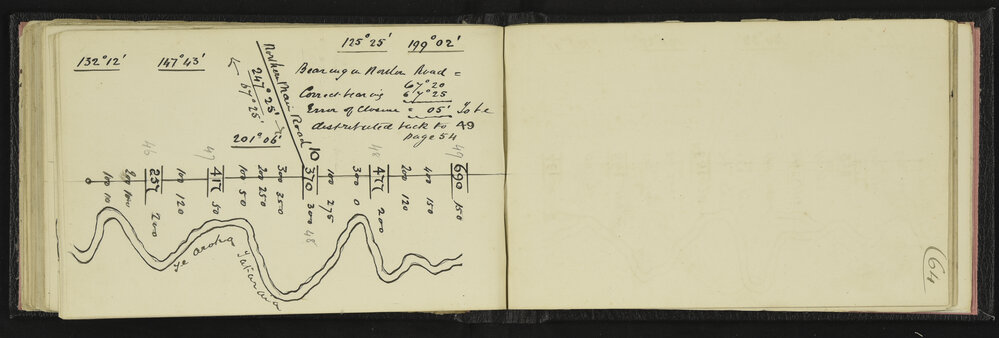 125° 25' 199° 02'
132° 12' 147° 43'
Northern Main Road
247° 25'
67° 25'
201° 06'
Bearing on Northn Road =
67° 20
Correct bearing 67° 25
Error of Closure = 05' To be
distributed back to 49
page 54
46 47 48 49
0
100 10
200 100
237 200
100 120
417 50
100 50
200 250
300 350
10
370 300
48
100 275
300 0
477 200
200 120
400 150
690 150
Te Aroha
64